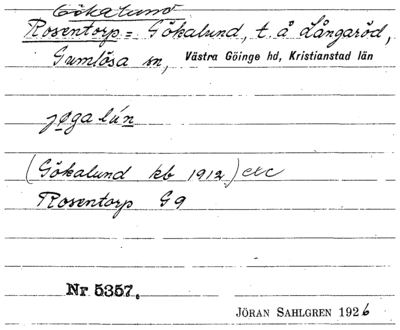 Gökalund
Rosentorp = Gökalund, t. å Långaröd,
Gumlösa sn, Västra Göinge hd, Kristianstad län
(Gökalund kb 1912) etc
Rosentorp G9
Nr 5357.
JÖRAN SAHLGREN 1926